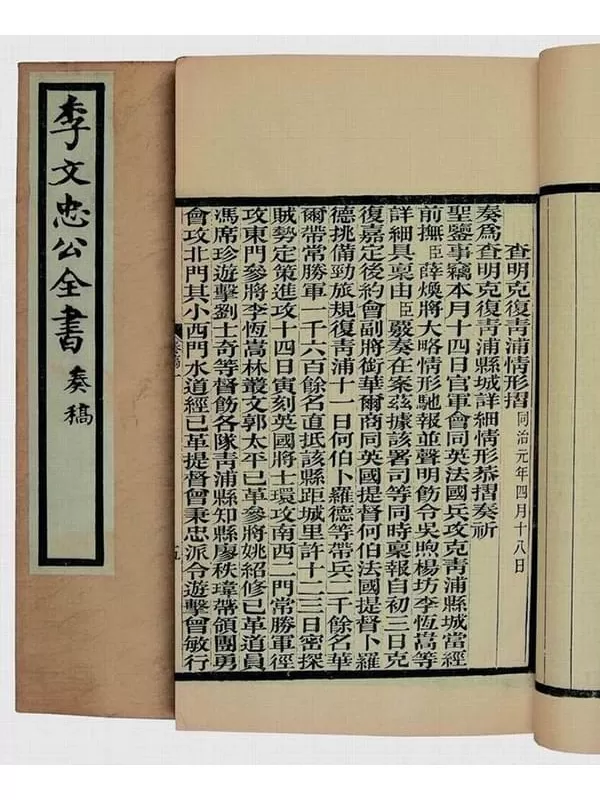 李文忠公全書 奏稿
查明克復青浦情形摺 同治元年四月十八日
奏爲查明克復青浦縣城詳細情形恭摺奏祈
聖鑒事竊本月十四日官軍會同英法國兵攻克青浦縣城當經
前撫臣薛煥將大略情形馳報並聲明飭令吳煦楊坊李恆嵩等
詳細具稟由臣覈奏在案茲據該署司等同時稟報自初三日克
復嘉定後約會副將銜華爾商同英國提督何伯法國提督卜羅
德挑備勁旅規復青浦十一日何伯卜羅德等帶兵二千餘名華
爾帶常勝軍一千六百餘名直抵該縣距城里許十二三日密探
賊勢定策進攻十四日寅刻英國將士環攻南西二門常勝軍徑
攻東門參將李恆嵩林叢文郭太平已革參將姚紹修已革道員
馮席珍遊擊劉士奇等督飭各隊青浦縣知縣廖秩瑋帶領團勇
會攻北門其小西門水道經已革提督曾秉忠派令遊擊曾敏行